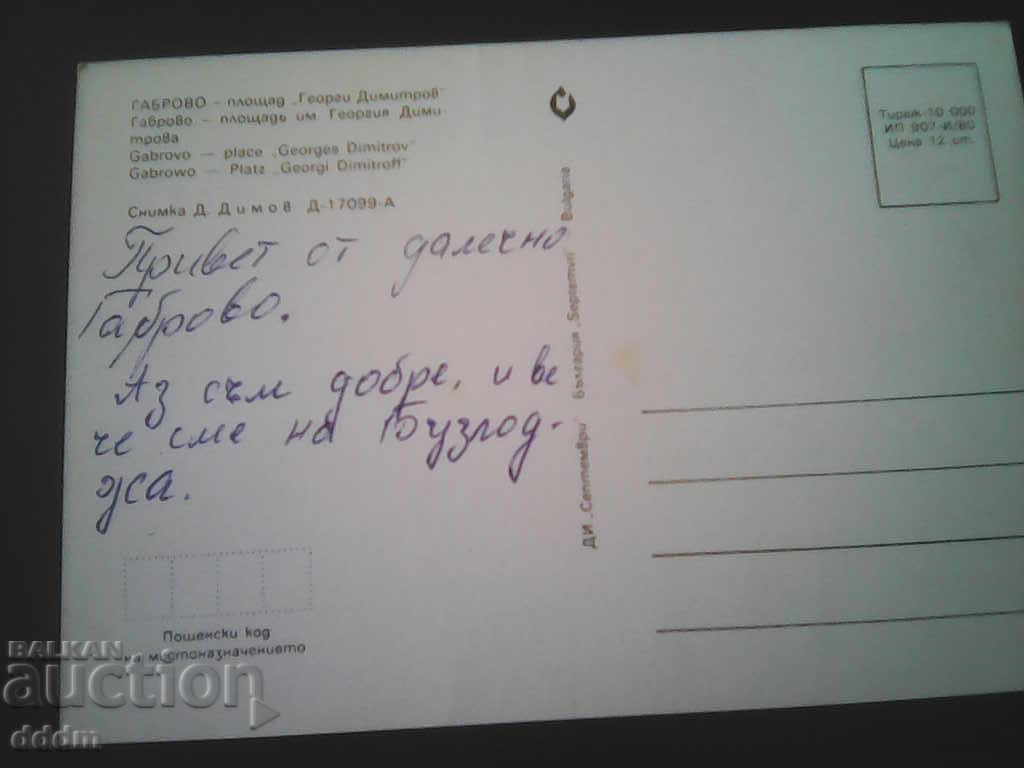 ГАБРОВО — площад „Георги Димитров"
Габрово — площадь им Георгия Дими-
трова
Gabrovo — place „Georges Dimitrov"
Gabrowo — Platz „Georgi Dimitroff"
Снимка Д. Димов Д-17099-А
Привет от далечно
Габрово.
Аз съм добре, и ве
че сме на Бузлод-
жа.
Пощенски код
на местоназначението
ДИ „Септември" България „Septemvri" Bulgaria
Тираж 10 000
ИП 907-И/80
Цена 12 ст.
BALKAN
auction
dddm